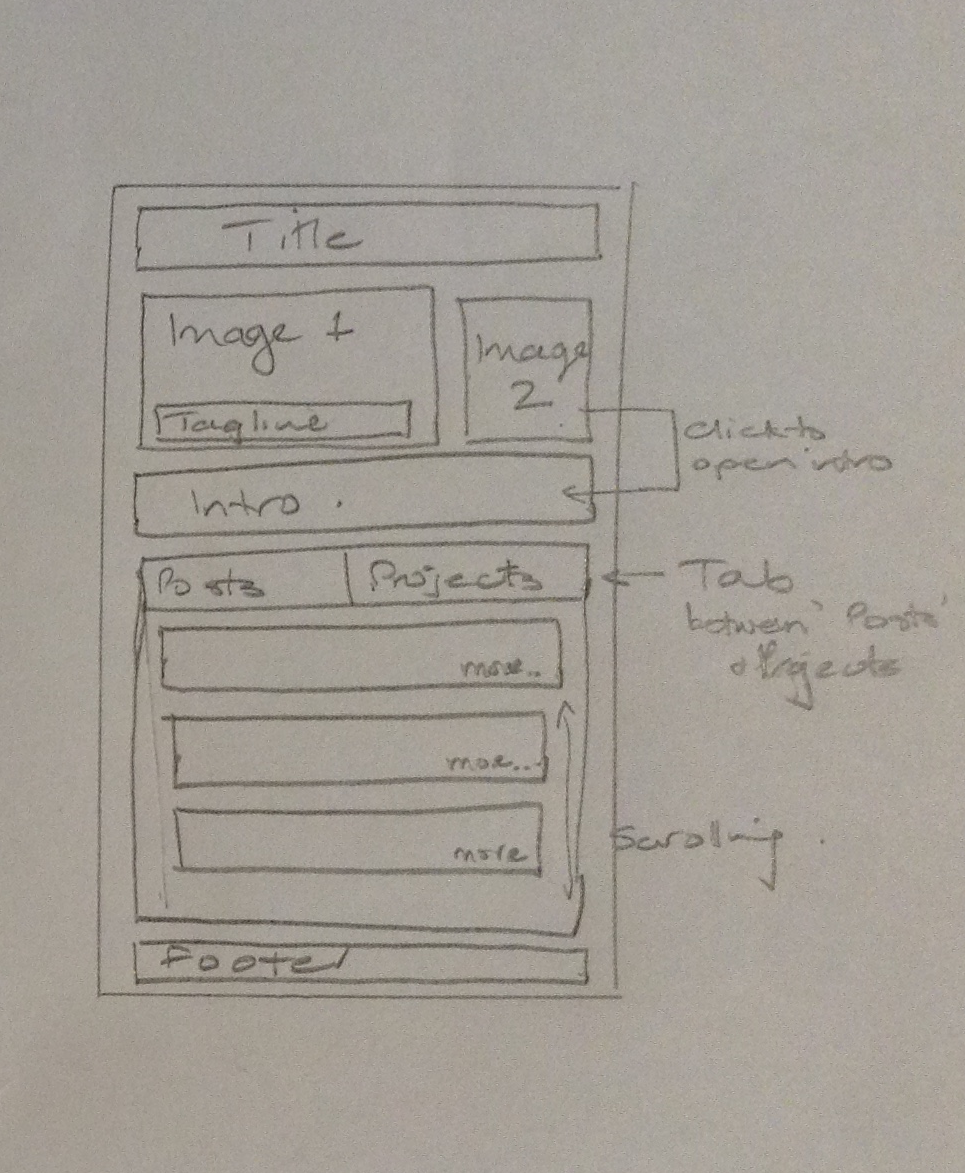 Title
Image 1
Image
2
Tagline
click to
open intro
Intro .
Posts
Projects
Tab
between 'Posts'
& Projects
more..
more...
more
Scrolling .
Footer